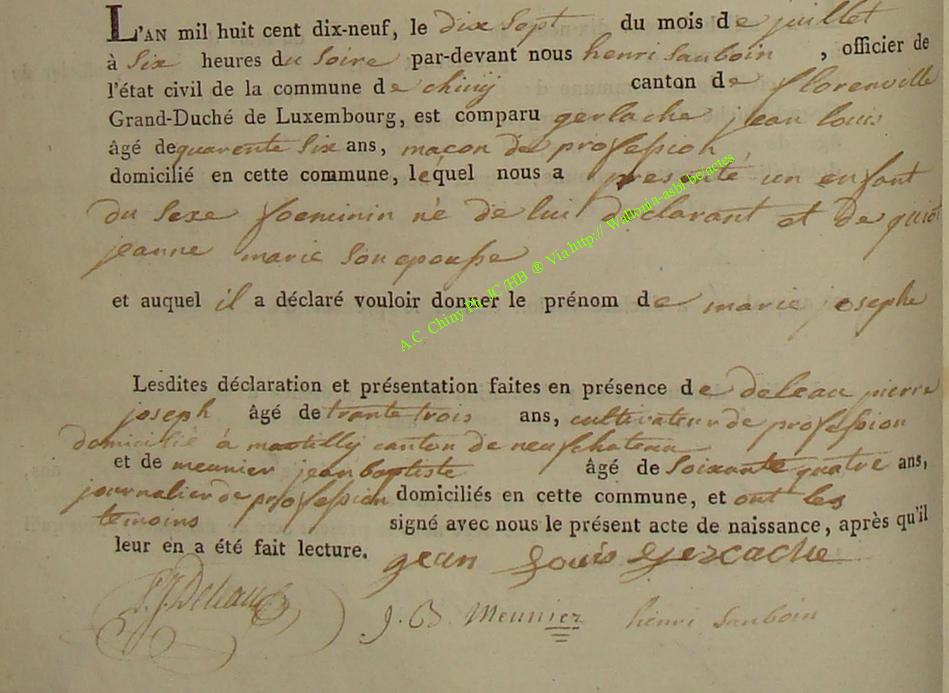 L'AN mil huit cent dix-neuf, le dix Sept du mois de juillet
à Six heures du Soire par-devant nous henri Sauboin , officier de
l'état civil de la commune de chinÿ canton de florenville
Grand-Duché de Luxembourg, est comparu gerlache jean louis
âgé de quarente Six ans, maçon de profession,
domicilié en cette commune, lequel nous a presenté un enfant
du Sexe foeminin né de lui déclarant et de
jeanne marie Son epousse
et auquel il a déclaré vouloir donner le prénom de marie josephe
Lesdites déclaration et présentation faites en présence de deleau pierre
joseph âgé de trante trois ans, cultivateur de profession
domicilié à martilly canton de neufchateau
et de meunier jean baptiste âgé de Soixante quatre ans,
journalier de profession domiciliés en cette commune, et ont les
temoins signé avec nous le présent acte de naissance, après qu'il
leur en a été fait lecture. jean Louis gerlache
J. B. Meunier henri Sauboin
A.C. Chiny Ph JC/HB ® Via http:// Wallonia-asbl-be/actes